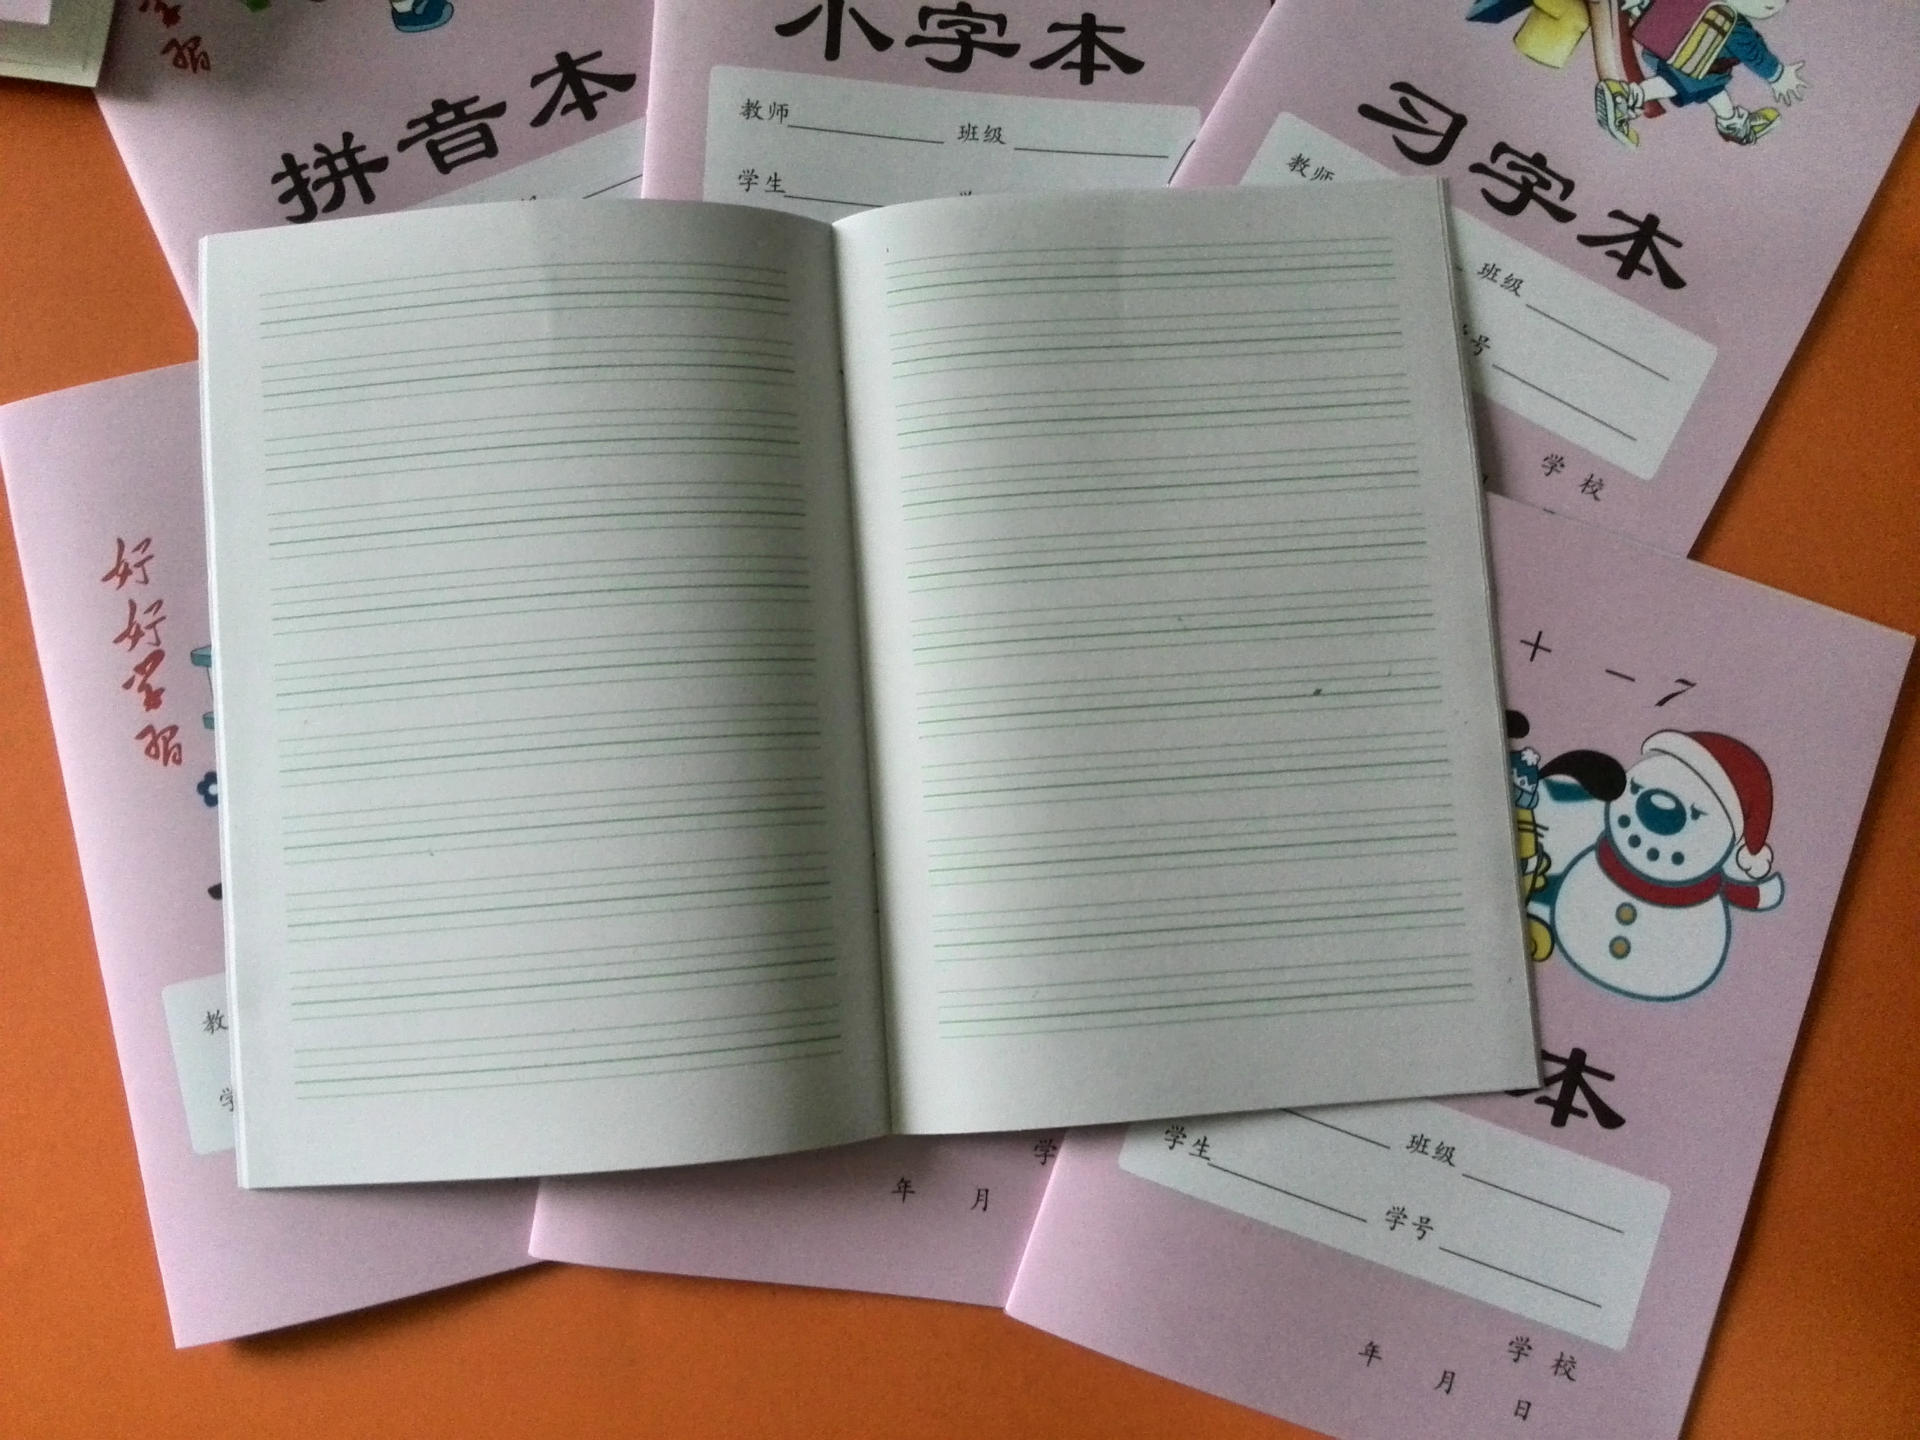 学
习
拼音本
小字本
教师 班级
学生
习字本
教师
班级
号
学校
好
好
学
习
教
学
+ - 7
本
学生 班级
学号
学
年 月
学校
年 月 日